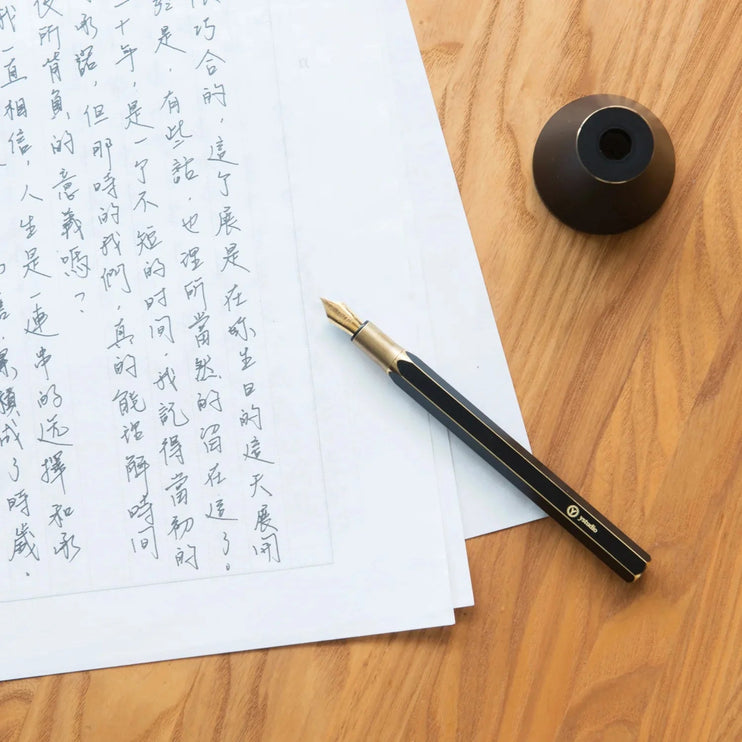 巧合的，這个展是在你生日的這天展開
是，有些話，也理所當然的留在這了。
十年，是一个不短的時間，我記得當初的
承諾，但那時的我們，真的能理解時間
所背負的意義嗎？
我一直相信，人生是一連串的选擇和承
累積成了時歲.
ystudio